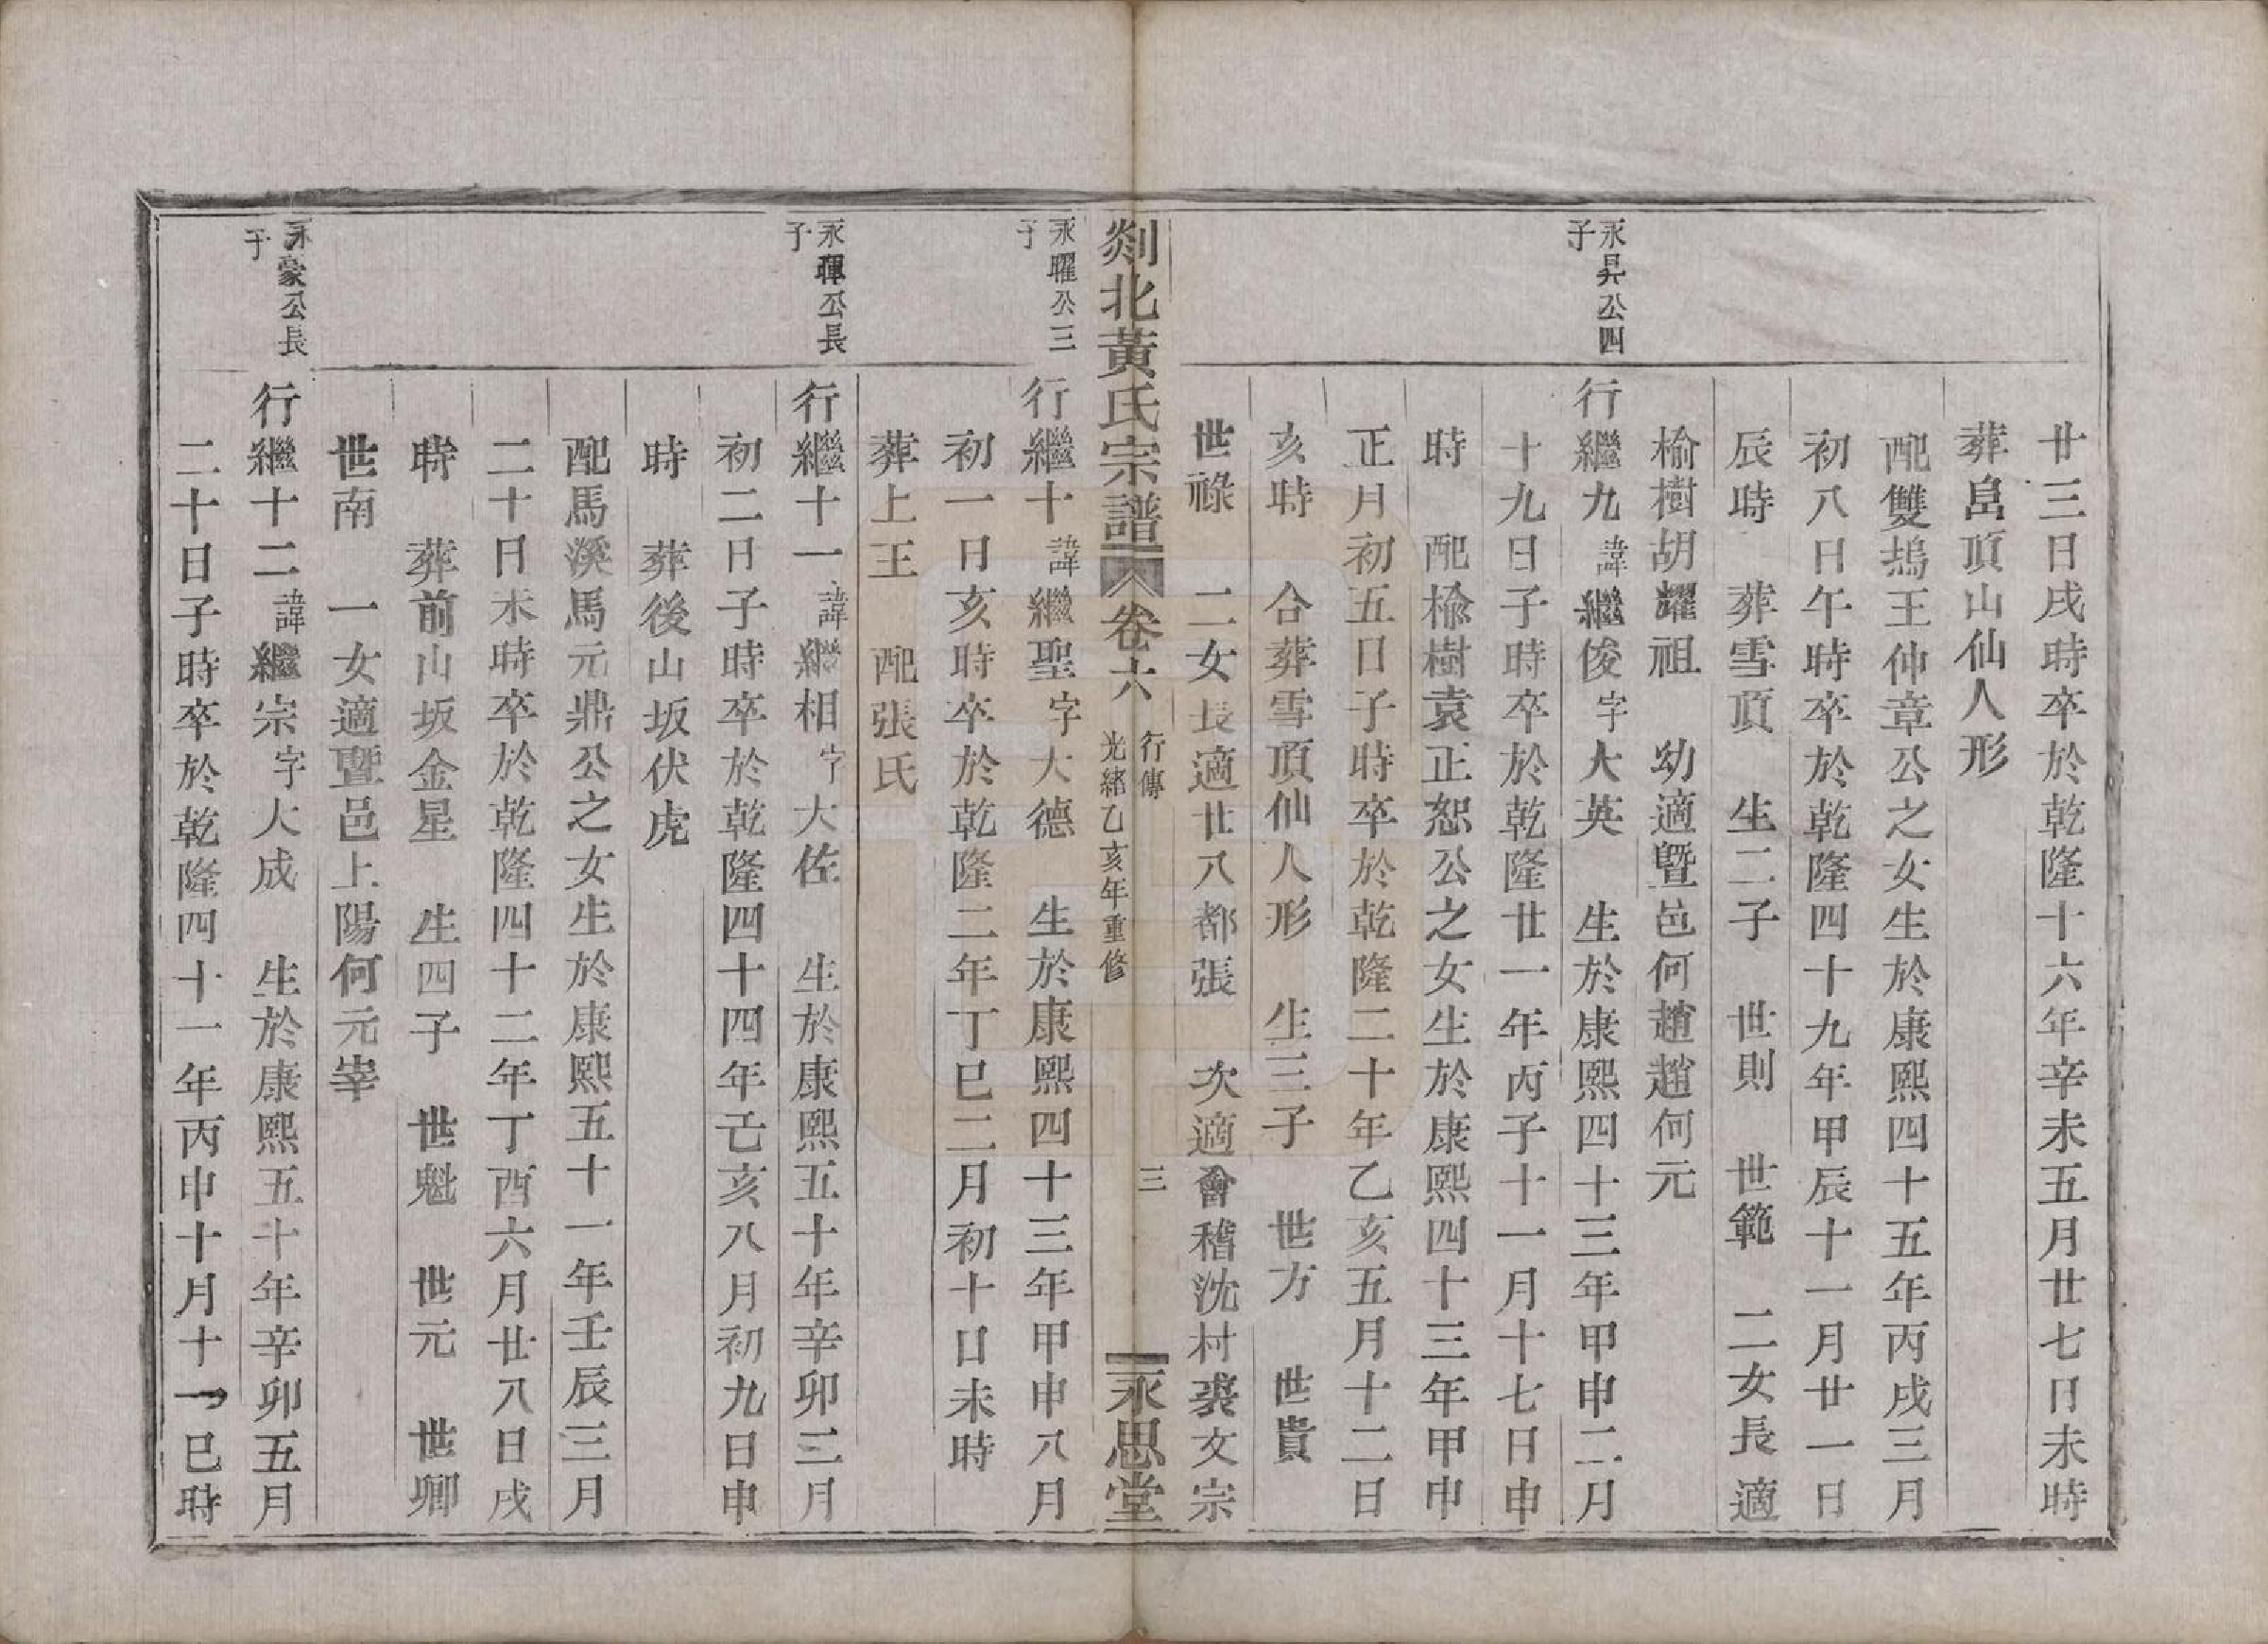 廿三日戌時卒於乾隆十六年辛未五月廿七日未時
葬島頂山仙人形
配雙塢王仲章公之女生於康熙四十五年丙戌三月
初八日午時卒於乾隆四十九年甲辰十一月廿一日
辰時 葬雪頂 生二子 世則 世範 二女長適
榆樹胡耀祖 幼適暨邑何趙趙何元
永昇公四
子
行繼九諱繼俊字大英 生於康熙四十三年甲申二月
十九日子時卒於乾隆廿一年丙子十一月十七日申
時 配榆樹袁正恕公之女生於康熙四十三年甲申
正月初五日子時卒於乾隆二十年乙亥五月十二日
亥時 合葬雪頂仙人形 生三子 世方 世貴
世祿 二女長適廿八都張 次適會稽沈村裘文宗
剡北黃氏宗譜 卷六 行傳 光緒乙亥年重修 三 永思堂
永曜公三
子
行繼十諱繼聖字大德 生於康熙四十三年甲申八月
初一日亥時卒於乾隆二年丁巳二月初十日未時
葬上王 配張氏
永琿公長
子
行繼十一諱繼相字大佐 生於康熙五十年辛卯三月
初二日子時卒於乾隆四十四年己亥八月初九日申
時 葬後山坂伏虎
配馬溪馬元鼎公之女生於康熙五十一年壬辰三月
二十日未時卒於乾隆四十二年丁酉六月廿八日戌
時 葬前山坂金星 生四子 世魁 世元 世卿
世南 一女適暨邑上陽何元宰
永豪公長
子
行繼十二諱繼宗字大成 生於康熙五十年辛卯五月
二十日子時卒於乾隆四十一年丙申十月十一巳時